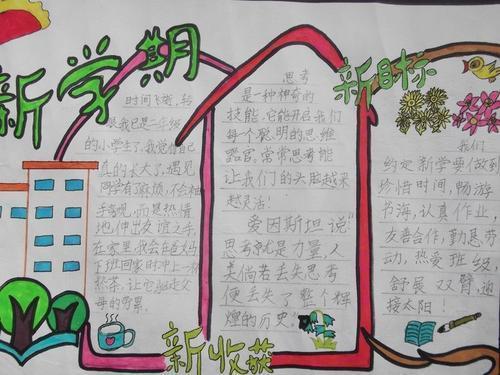 新学期
时间飞逝，转
眼我已是一年级
的小学生了，我觉得自己
真的长大了，遇见
同学有麻烦，不会袖
手旁观，而是热情
地伸出友谊之手，
在家里，我会在爸妈
下班回家时冲上一杯
热茶，让它驱走父
母的劳累。
思考
是一种神奇的
技能，它能开启我们
每个聪明的思维
器官，常常思考能
让我们的头脑越来
越灵活！
爱因斯坦说“
思考就是力量，人
类倘若丢失思考
便丢失了整个辉
煌的历史。”
新目标
我们
约定新学要做到
珍惜时间，畅游
书海，认真作业，
友善合作，勤恳劳
动，热爱班级，
舒展双臂，迎
接太阳！
新收获